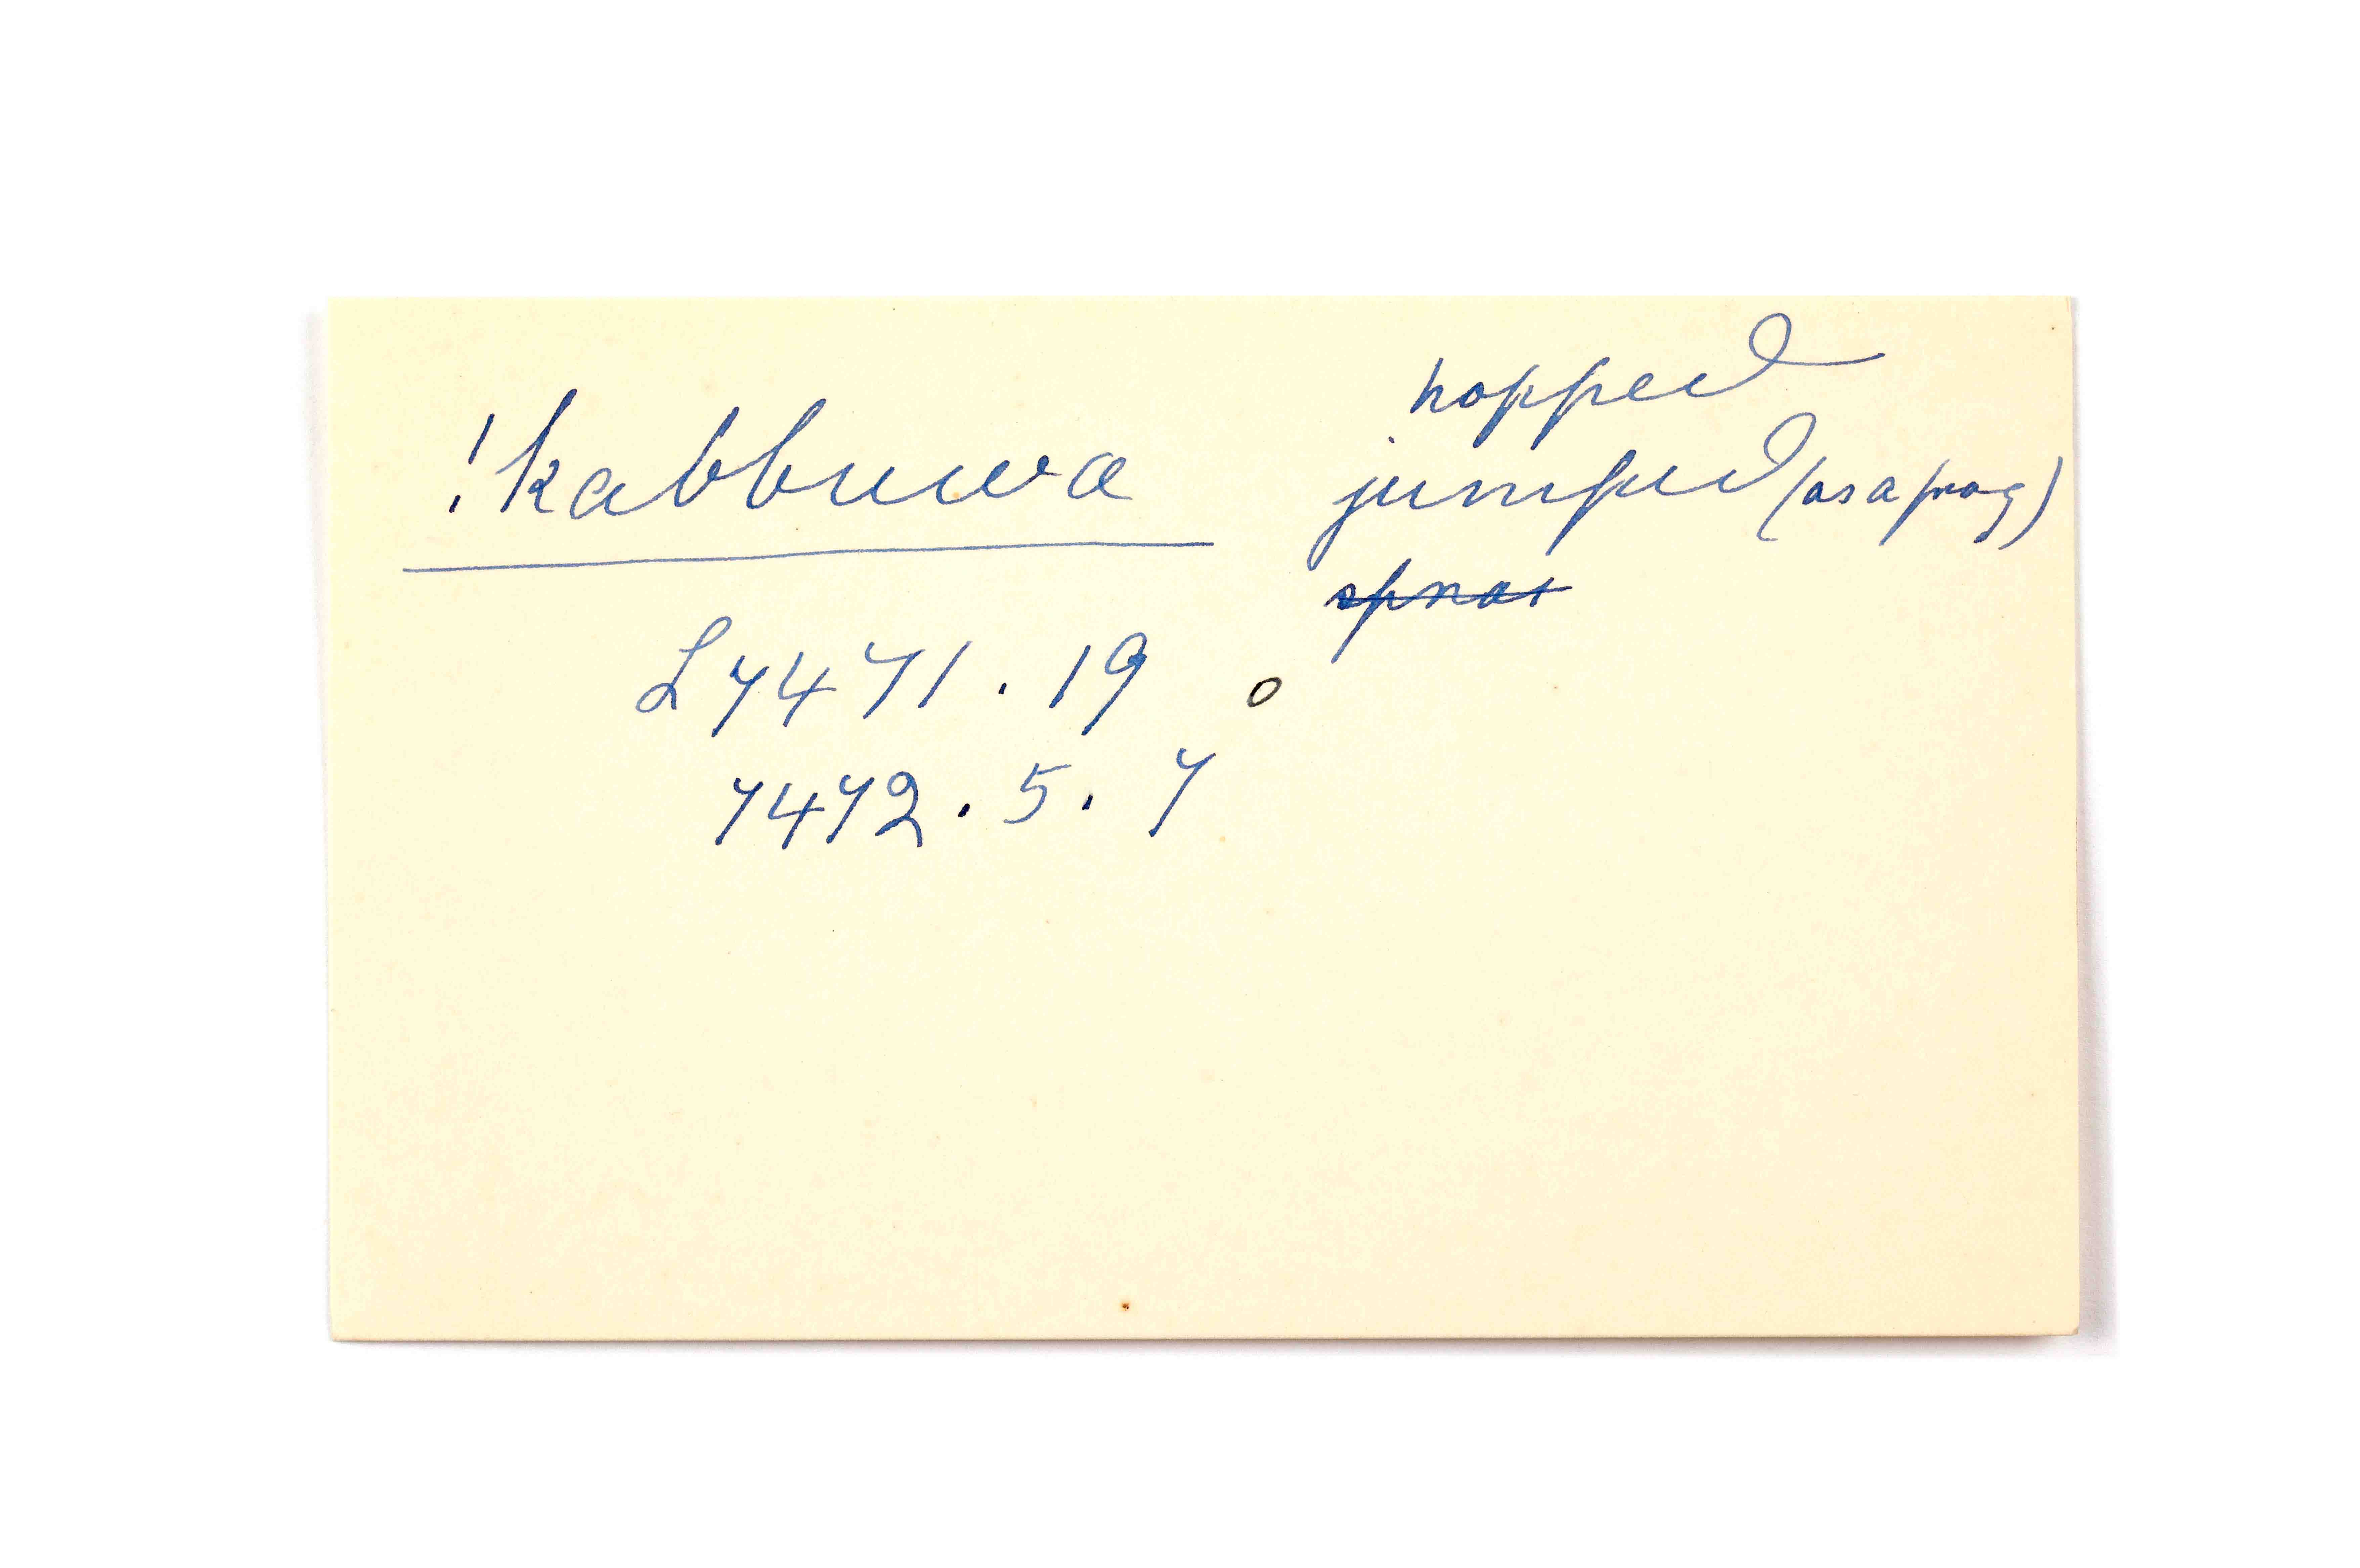 !kabbuwa
hopped
jumped (as a frog)
L7471.19 o
7472.5.7